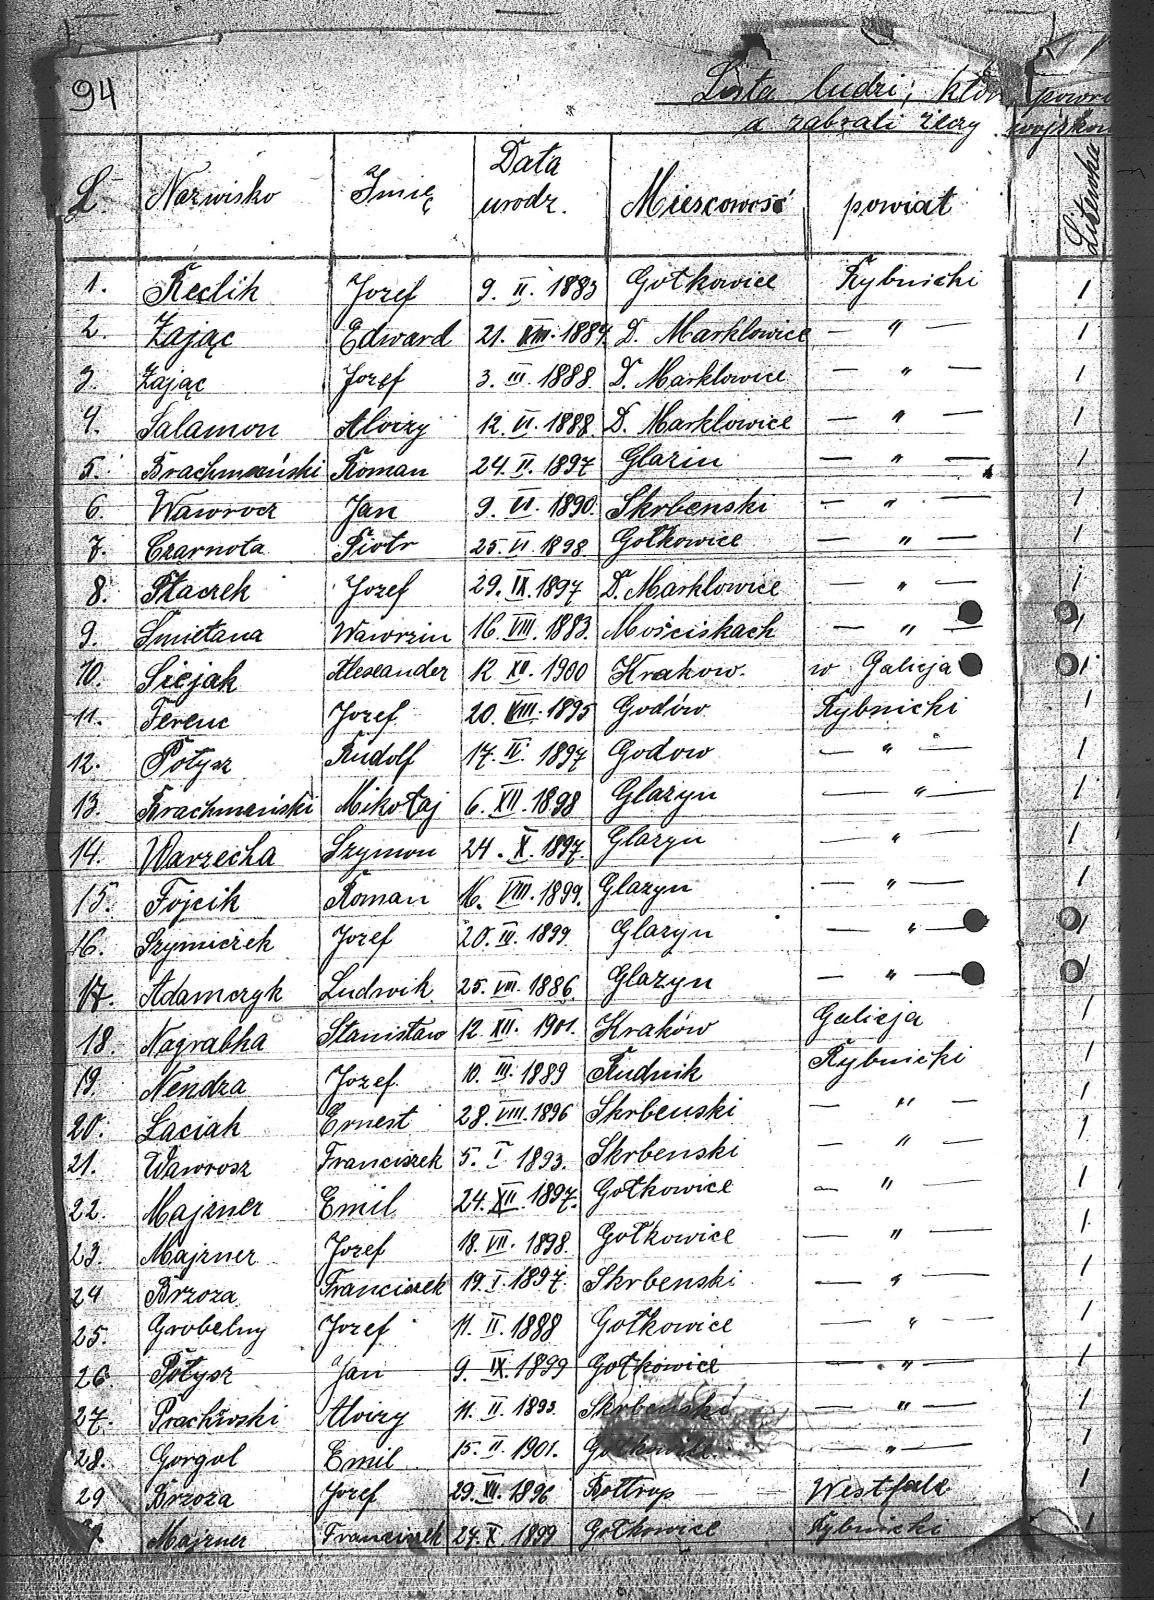 94
Lista ludzi, któr powro
a zabrali rzeczy wojskow
L. Nazwisko Imię Data urodz. Miescowość powiat Litewka
1. Reclik Jozef 9. II. 1883 Gołkowice Rybnicki 1
2. Zając Edward 21. VIII. 1884. D. Marklowice — " — 1
3. Zając Jozef 3. III. 1888. D. Marklowice — " — 1
4. Salamon Aloizy 12. VI. 1888. D. Marklowice — " — 1
5. Brachmański Roman 24. II. 1897 Glazin — " — 1
6. Wawrocz Jan 9. VI. 1890. Skrbenski — " — 1
7. Czarnota Piotr 25. VI. 1898. Gołkowice — " — 1
8. Ptaczek Jozef 29. IX. 1897 D. Marklowice — " — 1
9. Smietana Wawrzin 16. VIII. 1883. Mościskach — " — 1
10. Siejak Alexander 12 XII. 1900 Krakow. w Galicja 1
11. Ferenc Jozef 20. VIII. 1895 Godów Rybnicki 1
12. Połysz Rudolf 17. II. 1897 Godow — " — 1
13. Brachmański Mikołaj 6. XII. 1898 Glazyn — " — 1
14. Warzecha Szymon 24. X. 1897. Glazyn — " — 1
15. Fojcik Roman 16. VIII. 1899. Glazyn — " — 1
16. Szymiczek Jozef 20. III. 1899 Glazyn — " — 1
17. Adamczyk Ludwik 25. VIII. 1886. Glazyn — " —
18. Nagrabka Stanisław 12. XII. 1901. Kraków Galicja 1
19. Nendza Jozef. 10. III. 1889 Rudnik Rybnicki 1
20. Laciak Ernest 28. VIII. 1896 Skrbenski — " — 1
21. Wawrosz Franciszek 5. I. 1893. Skrbenski — " — 1
22. Majzner Emil 24. XII. 1897. Gołkowice — " — 1
23. Majzner Jozef 18. VII. 1898. Gołkowice — " — 1
24 Brzoza Franciszek 19. I. 1897. Skrbenski — " — 1
25. Grobelny Jozef 11. II. 1888 Gołkowice — " — 1
26. Połysz Jan 9. IX. 1899 Gołkowice — " — 1
27. Alvizy 11. II. 1893. Skrbenski — " — 1
28. Gorgol Emil 15. II. 1901. Gołkowice — " — 1
29 Brzoza Jozef 29. 1896 Bottrop — — Westfale 1
Majzner Franciszek 24. X. 1899 Gołkowice Rybnicki 1